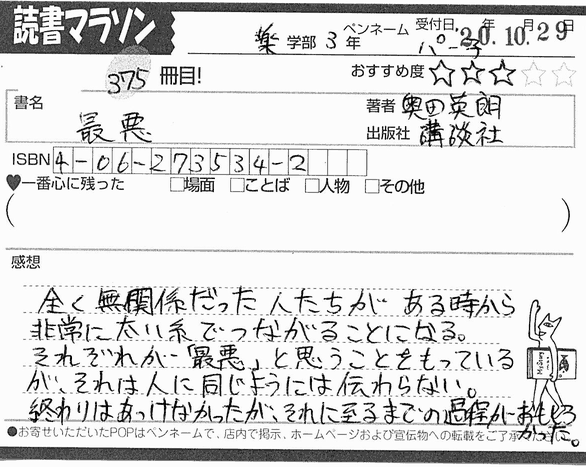 読書マラソン
薬 学部 3 年 ペンネーム パー子 受付日. '20年.10月.29日
375 冊目! おすすめ度 ☆☆☆☆☆
書名 最悪
著者 奥田英朗
出版社 講談社
ISBN 4-06-273534-2
♥一番心に残った □場面 □ことば □人物 □その他
( )
感想
全く無関係だった人たちが ある時から
非常に太い糸でつながることになる。
それぞれが「最悪」と思うことをもっている
が、それは人に同じようには伝わらない。
終わりはあっけなかったが、それに至るまでの過程がおもしろ
かった。
●お寄せいただいたPOPはペンネームで、店内で掲示、ホームページおよび宣伝物への転載をご了承